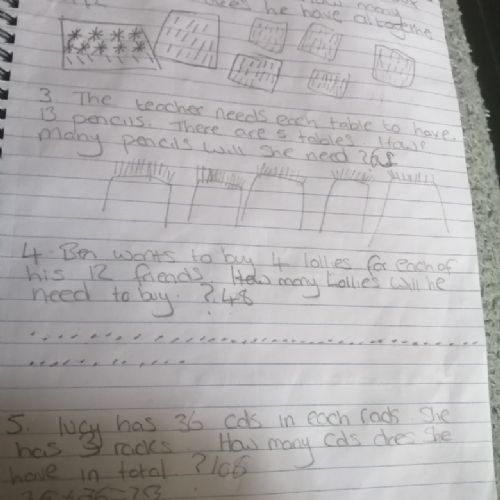 many
he have altogether
3. The teacher needs each table to have
13 pencils. There are 5 tables. How
many pencils will she need ? 65
4. Ben wants to buy 4 lollies for each of
his 12 friends. How many Lollies will he
need to buy. ? 48
5. lucy has 36 cds in each rack She
has 3 racks. How many cds does She
have in total ? 108